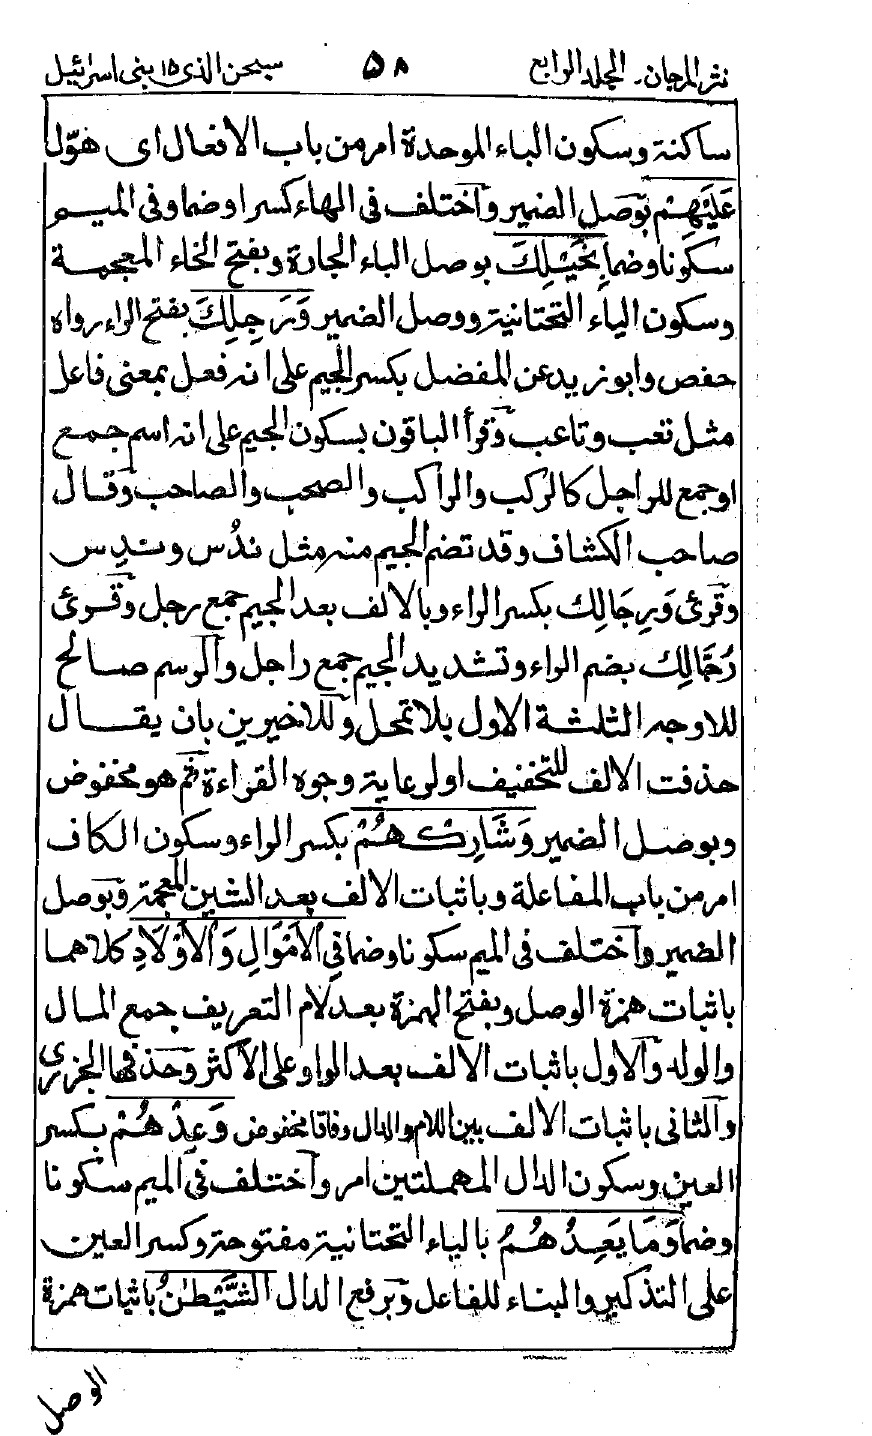 نثر المرجان۔ المجلد الرابع ۵۸ سبحن الذی ۱۵ بنی اسرائیل
ساکنة وسکون الباء الموحدة امر من باب الافعال ای هوّل
عَلَيْهِمْ بوصل الضمیر واختلف فی الهاء کسرا وضما وفی المیم
سکونا وضما بِخَيْلِكَ بوصل الباء الجارة وبفتح الخاء المعجمة
وسکون الیاء التحتانیة ووصل الضمیر وَرَجِلِكَ بفتح الراء رواه
حفص وابو زید عن المفضل بکسر الجیم علی انه فعل بمعنی فاعل
مثل تعب وتاعب وقرأ الباقون بسکون الجیم علی انه اسم جمع
او جمع للراجل کالرکب والراکب والصحب والصاحب وقال
صاحب الکشاف وقد تضم الجیم منه مثل ندُس وندِس
وقرئ وَرِجَالِكَ بکسر الراء وبالالف بعد الجیم جمع رجل وقرئ
رُجَّالِكَ بضم الراء وتشدید الجیم جمع راجل والرسم صالح
للاوجه الثلثة الاول بلا تمحل وللاخیرین بان یقال
حذفت الالف للتخفیف او لرعایة وجوه القراءة ثم هو مخفوض
وبوصل الضمیر وَشَارِكْهُمْ بکسر الراء وسکون الکاف
امر من باب المفاعلة وباثبات الالف بعد الشین المعجمة وبوصل
الضمیر واختلف فی المیم سکونا وضما فِي الْاَمْوَالِ وَالْاَوْلَادِ کلاهما
باثبات همزة الوصل وبفتح الهمزة بعد لام التعریف جمع المال
والولد والاول باثبات الالف بعد الواو علی الاکثر وحذفها الجزری
والثانی باثبات الالف بین اللام والدال وفاقا مخفوض وَعِدْهُمْ بکسر
العین وسکون الدال المهملتین امر واختلف فی المیم سکونا
وضما وَمَا يَعِدُهُمُ بالیاء التحتانیة مفتوحة وکسر العین
علی التذکیر والبناء للفاعل وبرفع الدال الشَّيْطٰنُ باثبات همزة
الوصل